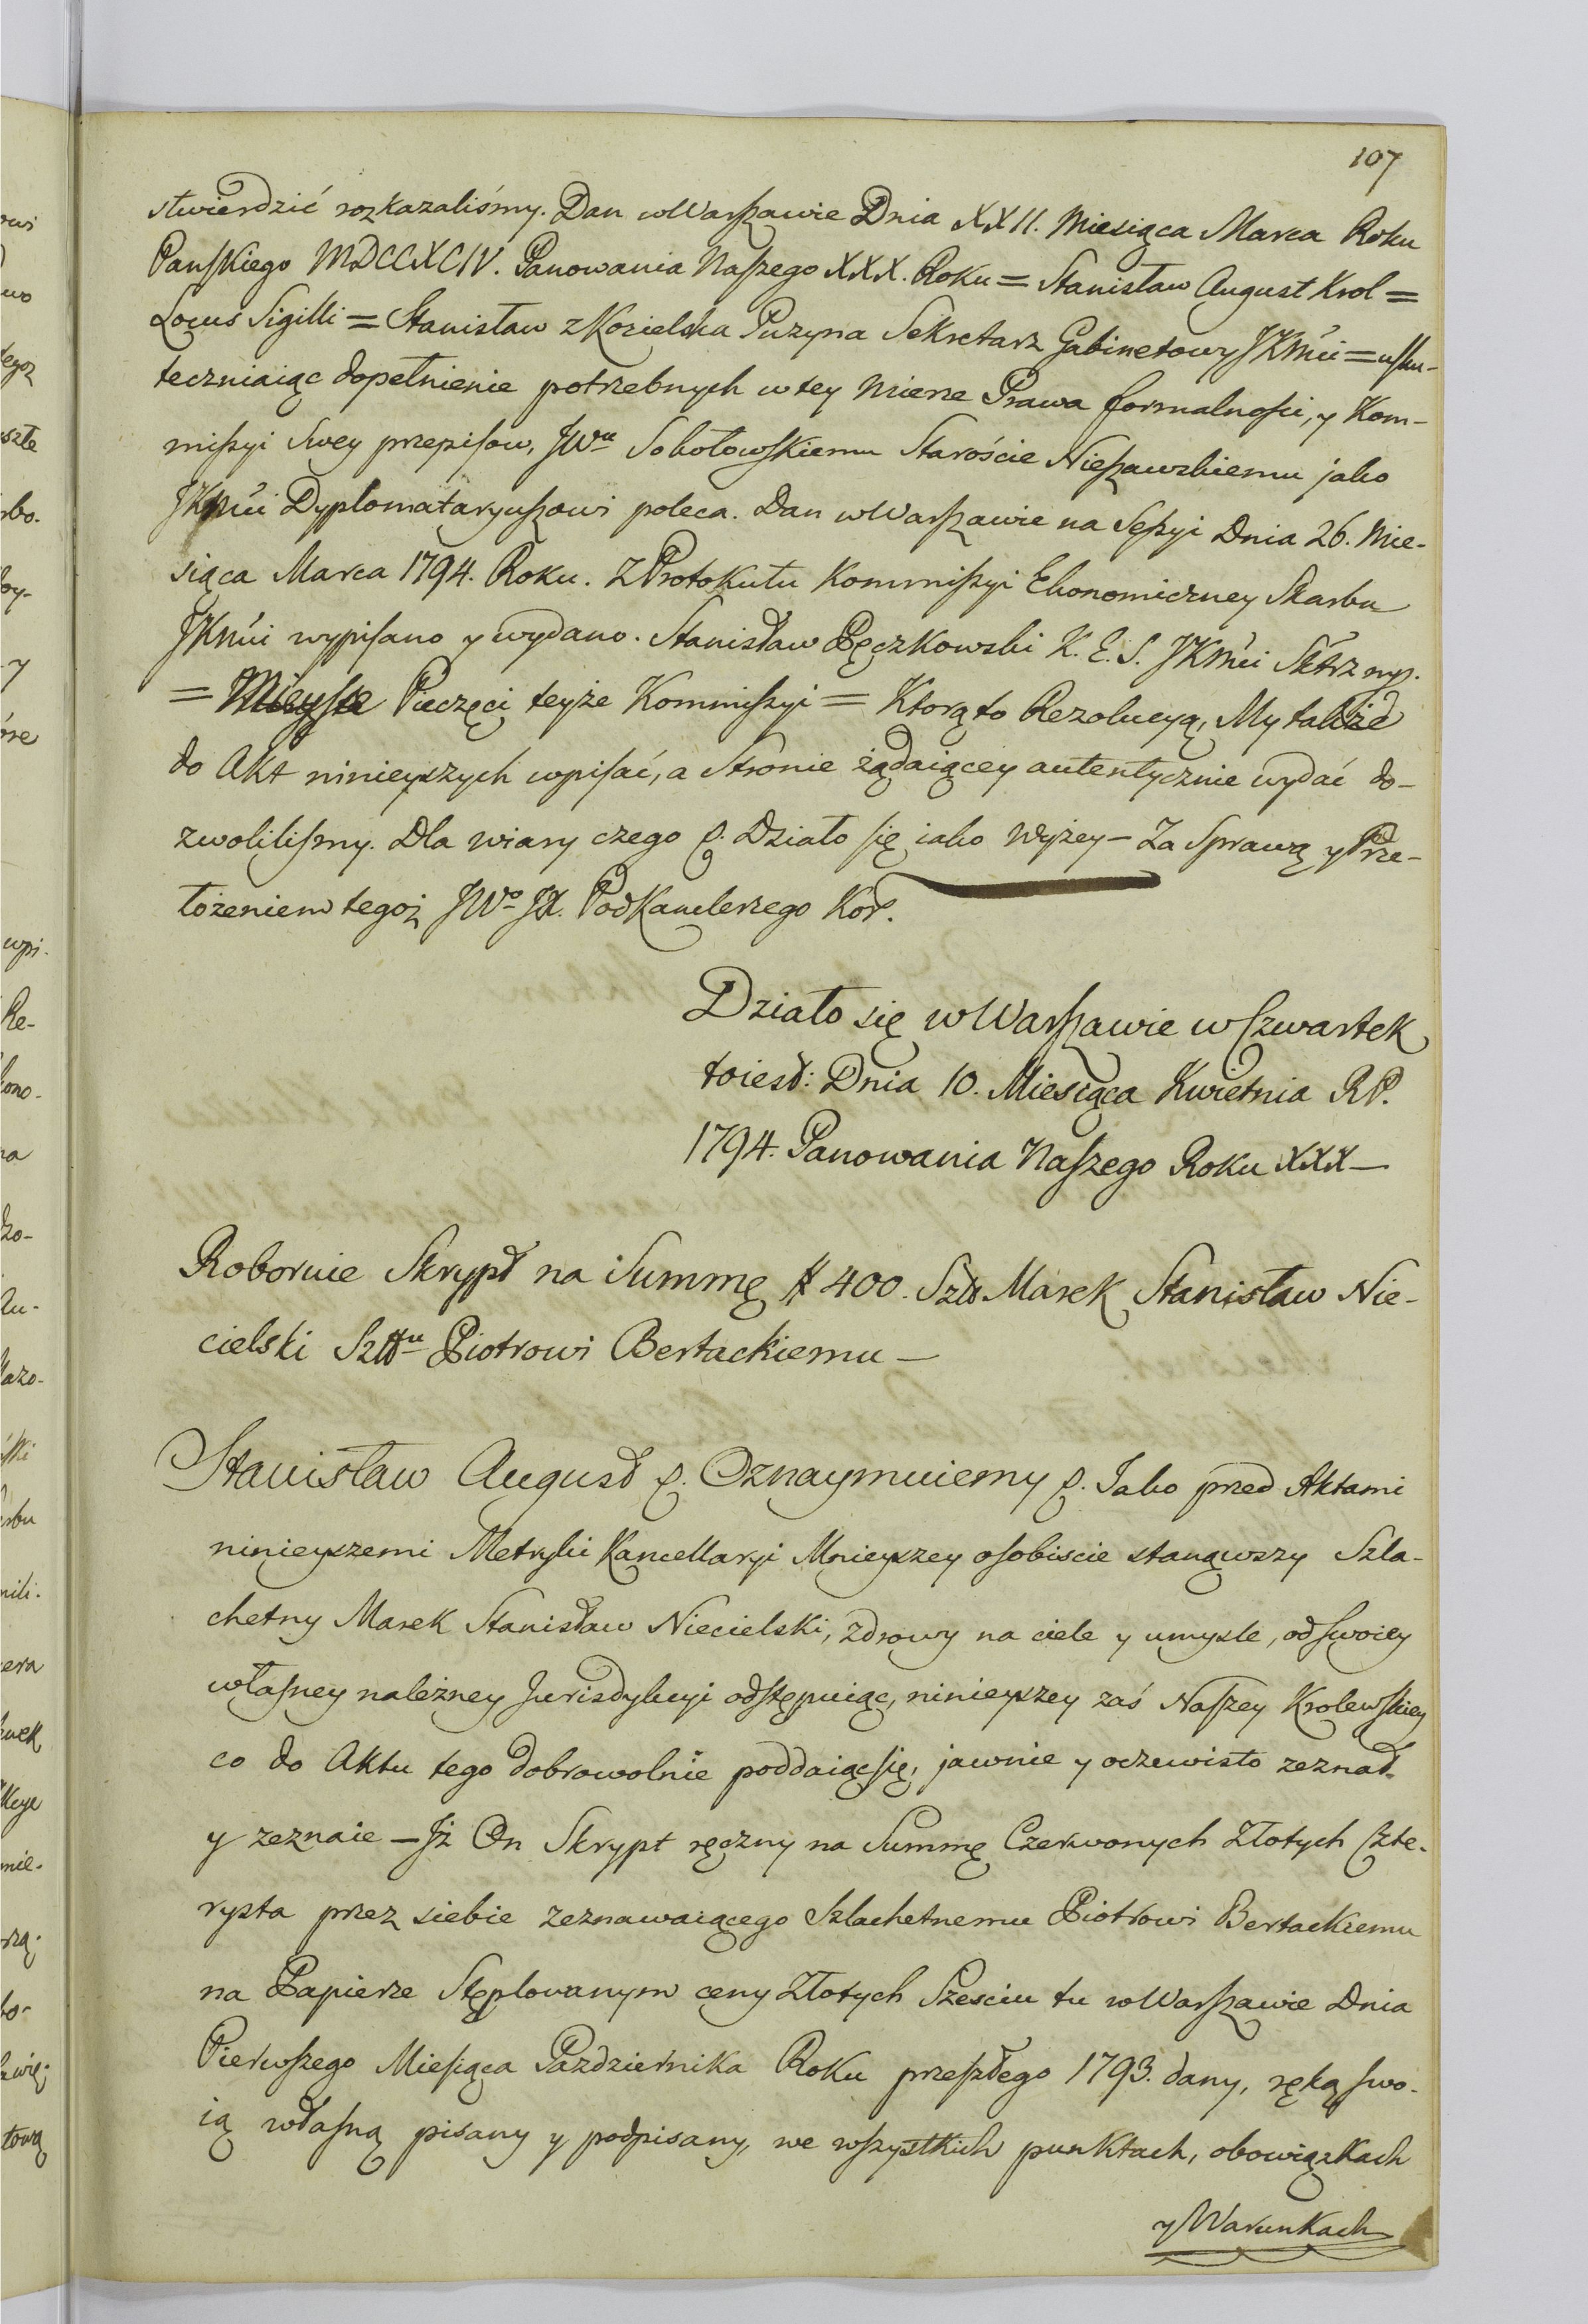 107
stwierdzić rozkazaliśmy. Dan w Warszawie Dnia XXII. Miesiąca Marca Roku
Panskiego MDCCXCIV. Panowania Naszego XXX. Roku = Stanisław August Krol =
Locus Sigilli = Stanisław z Kozielska Puzyna Sekretarz Gabinetowy JKMći = usku-
teczniaiąc dopełnienie potrzebnych w tey Mierze Prawa formalności, y Kom-
missyi Swey przepisow, JWu Sobolowskiemu Staroście Nieszawskiemu jako
JKMći Dyplomataryuszowi poleca. Dan w Warszawie na Sessyi Dnia 26. Mie-
siąca Marca 1794. Roku. Z Protokułu Kommissyi Ekonomiczney Skarbu
JKMći wypisano y wydano. Stanisław Pęczkowski K. E. S. JKMći Sktrz mp.
= Mieysce Pieczęci teyże Kommissyi = Ktorą to Rezolucyą, My także
do Akt ninieyszych wpisać, a Stronie żądaiącey autentycznie wydać do-
zwolilismy. Dla wiary czego p. Działo się iako wyżey – Za Sprawą y Prze-
łożeniem tegoż JWo JX. Podkanclerzego Kor.
Działo się w Warszawie w Czwartek
toiest: Dnia 10. Miesiąca Kwietnia RP.
1794. Panowania Naszego Roku XXX –
Roboruie Skrypt na Summę # 400. Szltt. Marek Stanisław Nie-
cielski Szlttu Piotrowi Bertackiemu –
Stanisław August p. Oznaymuiemy p. Iako przed Aktami
ninieyszemi Metryki Kancellaryi Mnieyszey osobiscie stanąwszy Szla-
chetny Marek Stanisław Niecielski, zdrowy na ciele y umysle, od swoiey
własney należney Jurisdykcyi odstępuiąc, ninieyszey zaś Naszey Krolewskiey
co do Aktu tego dobrowolnie poddaiąc się, jawnie y oczewisto zeznał
y zeznaie – Jż On Skrypt ręczny na Summę Czerwonych Złotych Czte-
rysta przez siebie zeznawaiącego Szlachetnemu Piotrowi Bertackiemu
na Papierze Stęplowanym ceny Złotych Szesciu tu w Warszawie Dnia
Pierwszego Miesiąca Pazdziernika Roku przeszłego 1793. dany, ręką swo-
ią własną pisany y podpisany, we wszystkich punktach, obowiązkach
y Warunkach